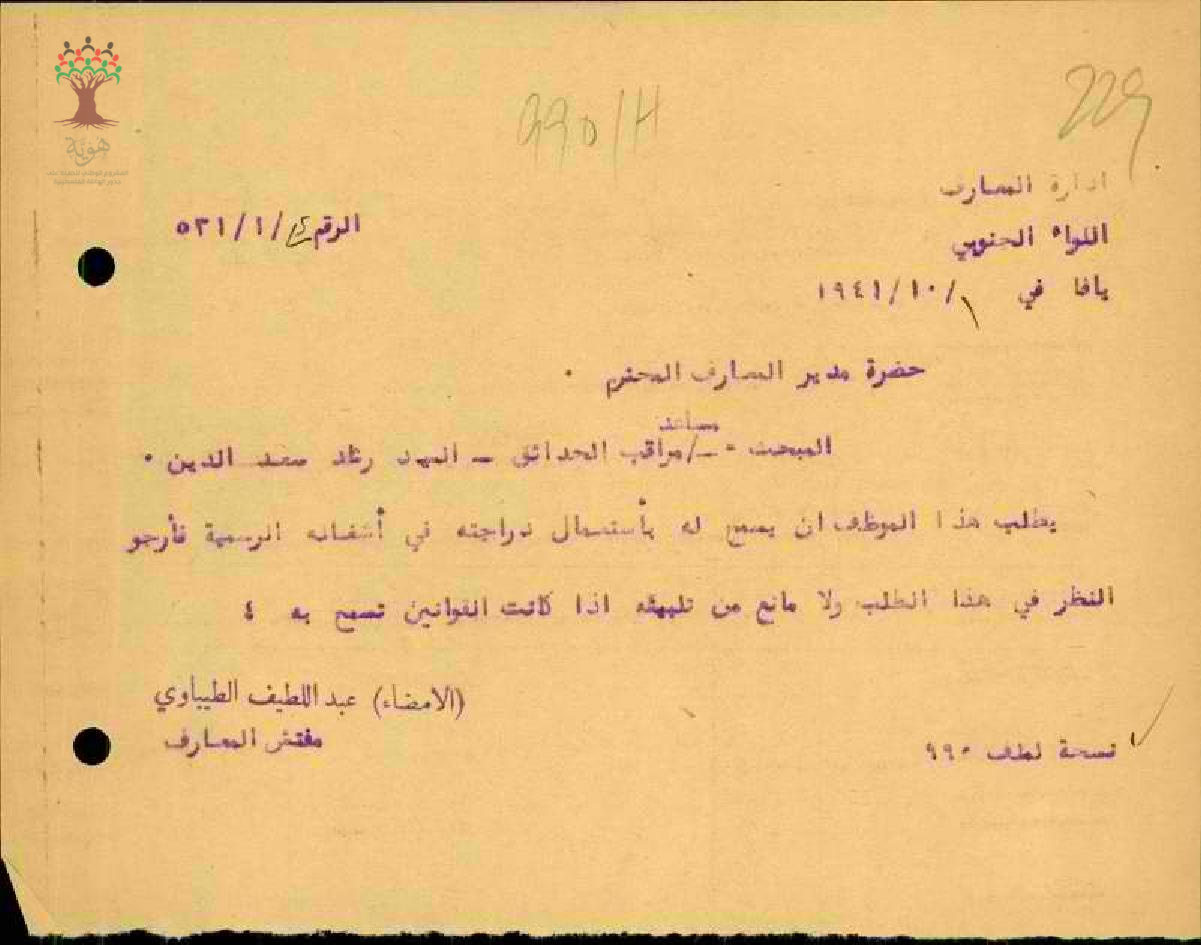 هوية
990/H
229
ادارة المعارف
الرقم ١٤/١/٥٣١
اللواء الجنوبي
يافا في ١/١٠/١٩٤١
حضرة مدير المعارف المحترم ٠
مساعد
المبحث - ــ/مراقب الحدائق ــ السيد رشاد سعد الدين ٠
يطلب هذا الموظف ان يسمح له بأستعمال دراجته في أشغاله الرسمية فأرجو
النظر في هذا الطلب ولا مانع من تلبيته اذا كانت القوانين تسمح به ٤
(الامضاء) عبد اللطيف الطيباوي
مفتش المعارف
نسخة لملف ٩٩٥